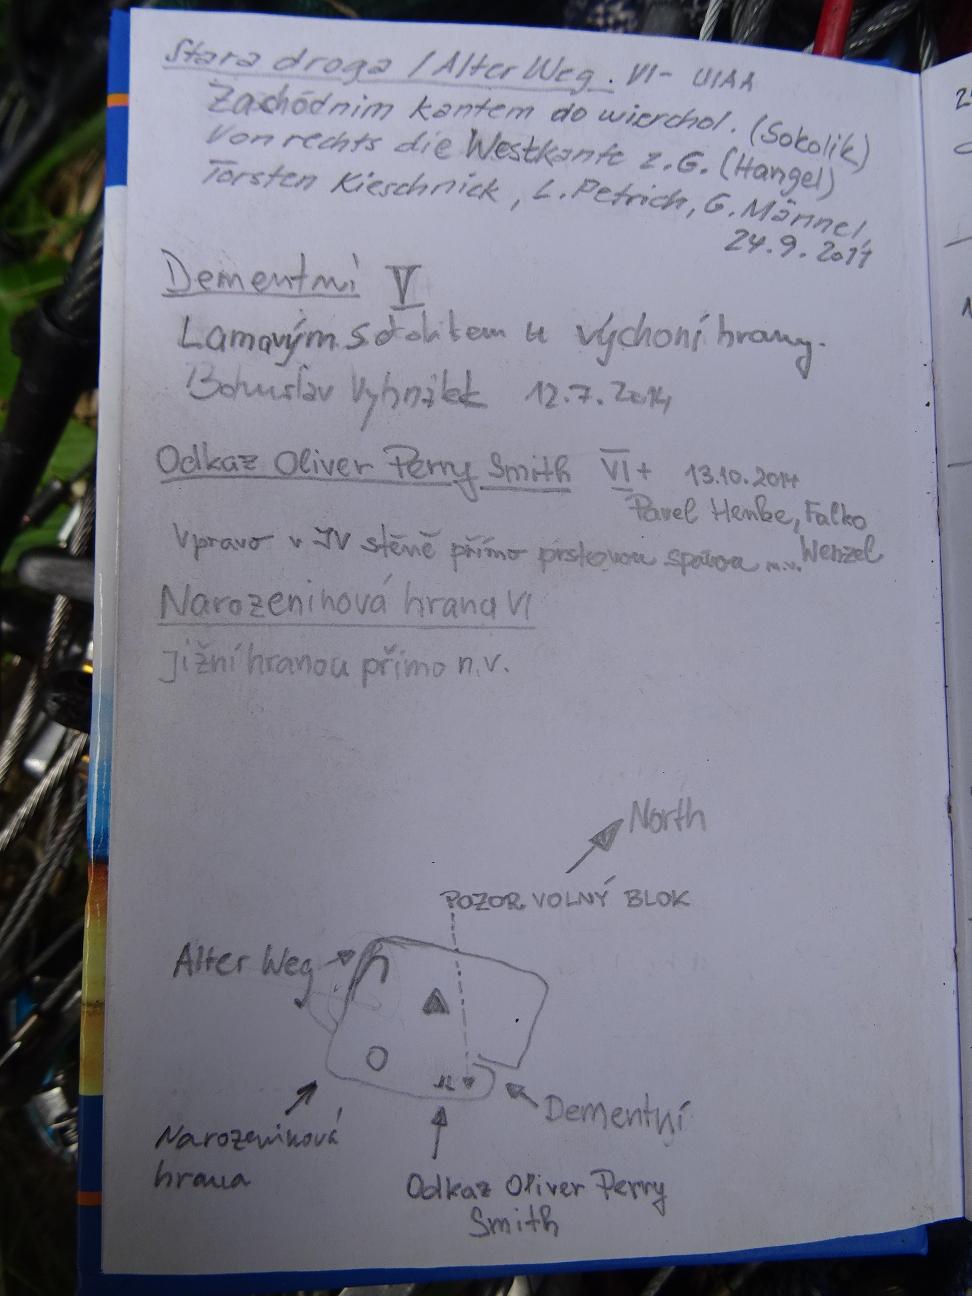 Stara droga / Alter Weg. VI- UIAA
Zachódnim kantem do wierchol. (Sokolik)
Von rechts die Westkante z.G. (Hangel)
Torsten Kieschnick, L. Petrich, G. Männel,
24.9.2011
Dementní V
Lamavým sokolitem u výchoní hrany.
Bohuslav Vyhnálek 12.7.2014
Odkaz Oliver Perry Smith VI+ 13.10.2014
Pavel Henke, Falko
Wenzel
Vpravo v JV stěně přímo prstovou spárou n.v.
Narozeninová hrana VI
Jižní hranou přímo n.v.
North
POZOR VOLNÝ BLOK
Alter Weg
Dementní
Narozeninová
hrana
Odkaz Oliver Perry
Smith